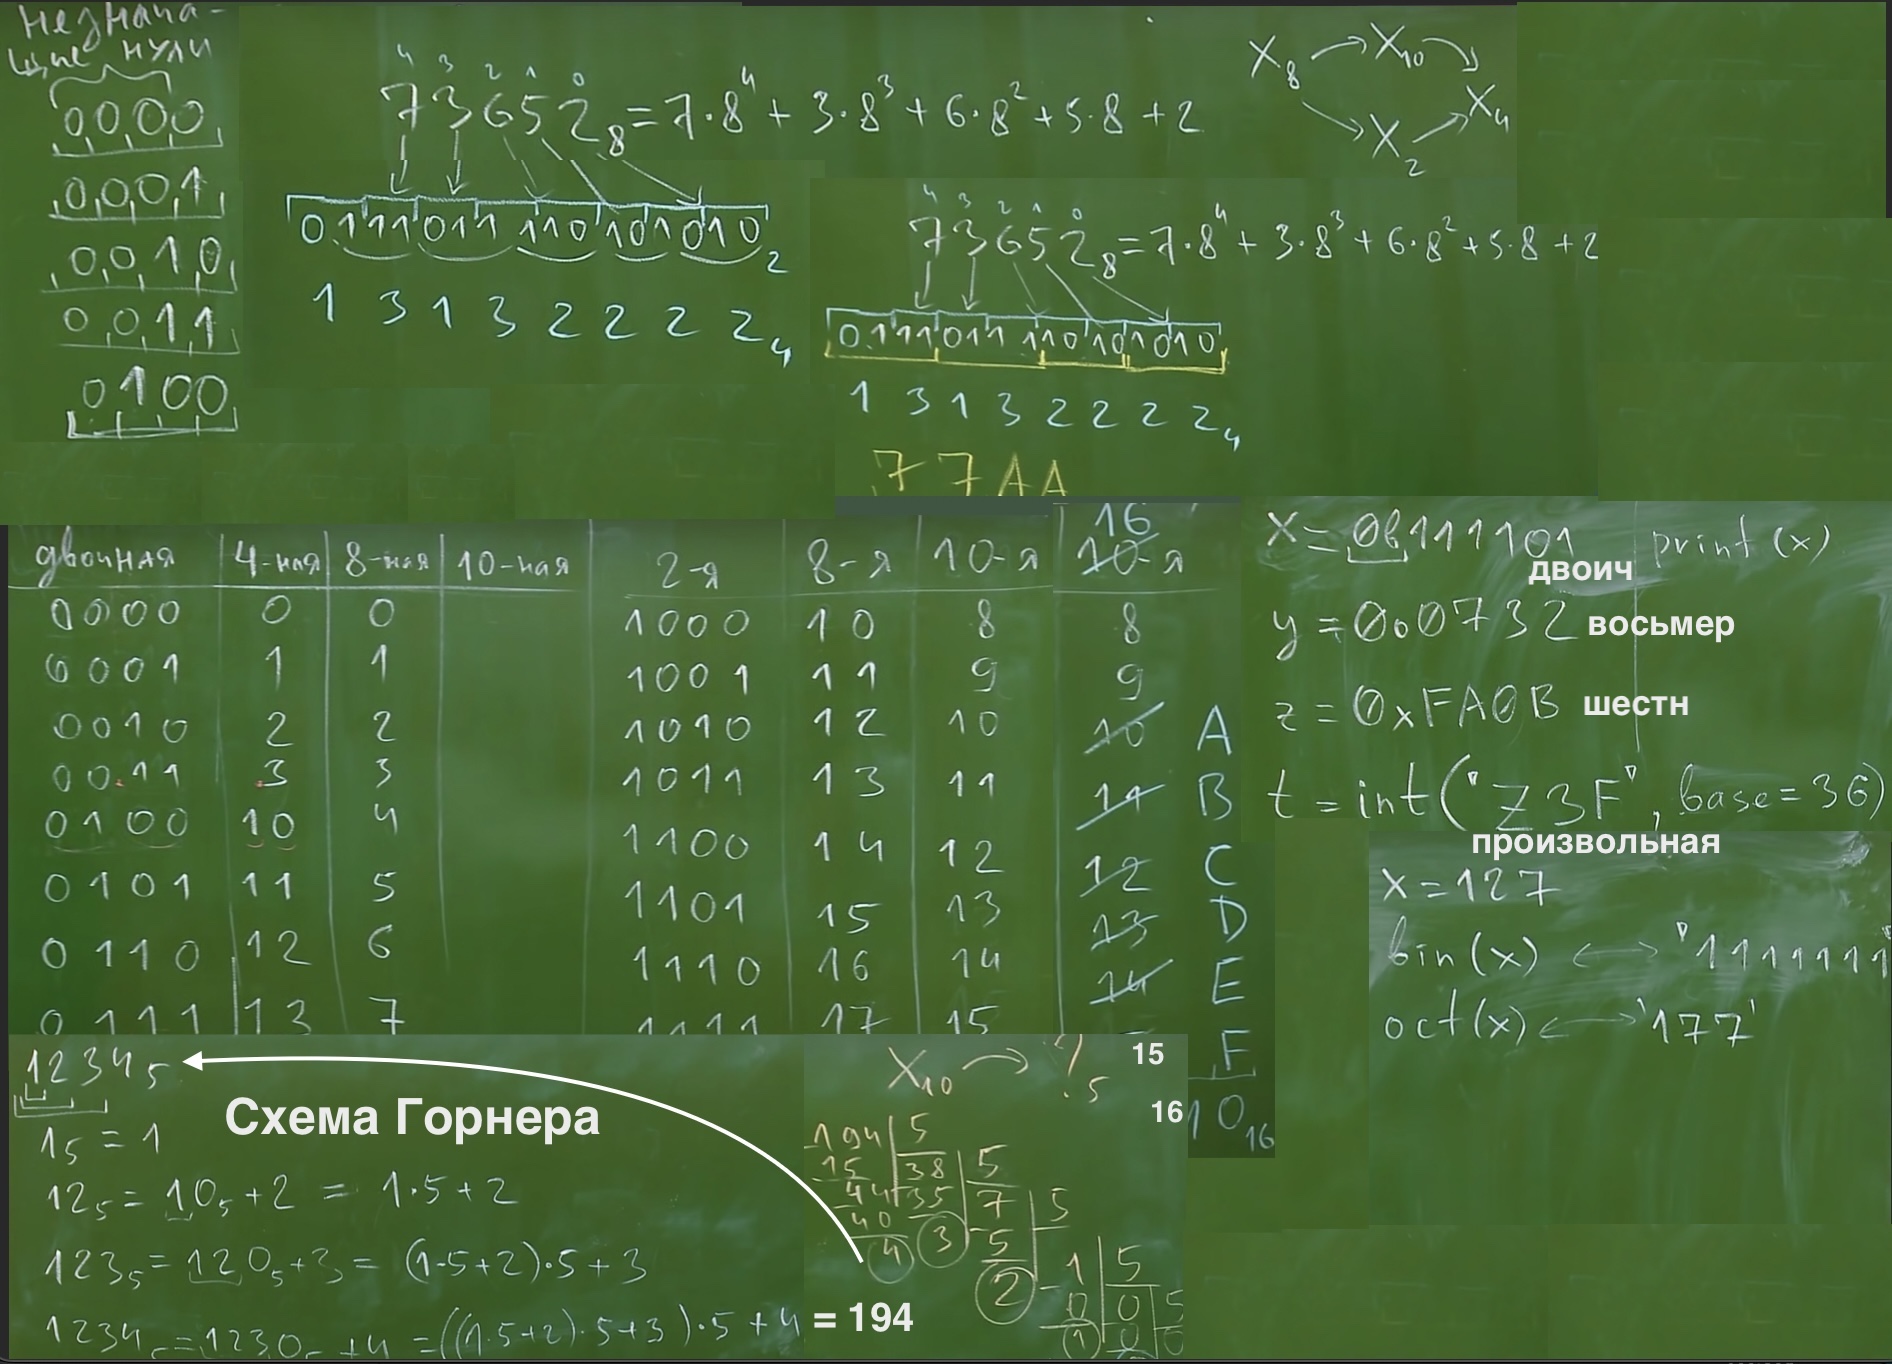 незнача-
щие нули
0000
0001
0010
0011
0100
4 3 2 1 0
73652₈ = 7·8⁴ + 3·8³ + 6·8² + 5·8 + 2
0111011110101010₂
1 3 1 3 2 2 2 2₄
X₈ → X₁₀ → X₄
X₂
4 3 2 1 0
73652₈ = 7·8⁴ + 3·8³ + 6·8² + 5·8 + 2
0111011110101010
1 3 1 3 2 2 2 2₄
7 7 A A
двоичная 4-ная 8-ная 10-ная
0000 0 0
0001 1 1
0010 2 2
0011 3 3
0100 10 4
0101 11 5
0110 12 6
0111 13 7
16
2-я 8-я 10-я 10-я
1000 10 8 8
1001 11 9 9
1010 12 10 10 A
1011 13 11 11 B
1100 14 12 12 C
1101 15 13 13 D
1110 16 14 14 E
1111 17 15 F
15
16 10₁₆
x = 0b111101 print(x)
двоич
y = 0o0732 восьмер
z = 0xFA0B шестн
t = int("Z3F", base=36)
произвольная
x = 127
bin(x) ↔ '1111111
oct(x) ↔ '177'
1234₅
Схема Горнера
1₅ = 1
12₅ = 10₅ + 2 = 1·5 + 2
123₅ = 120₅ + 3 = (1·5+2)·5 + 3
1234₅ = 1230₅ + 4 = ((1·5+2)·5+3)·5 + 4 = 194
X₁₀ → ?₅
194 5
15 38 5
44 35 7 5
40 3 5 1 5
4 2 0 0 5
1 0 0